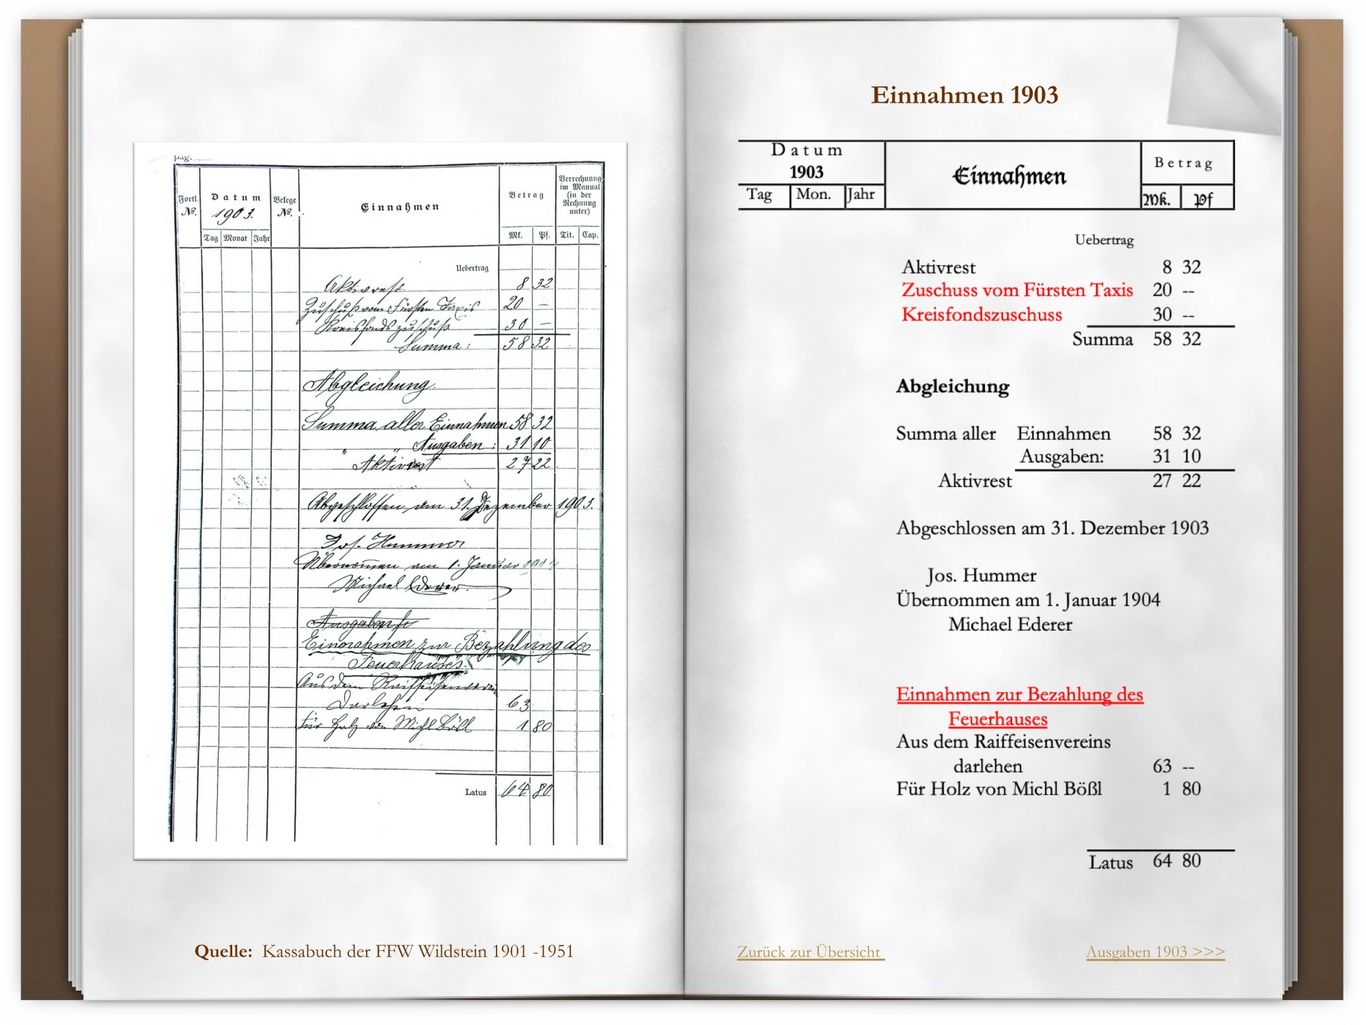 pag.
Fortl. No.
Datum
1903.
Tag Monat Jahr
Belege No.
Einnahmen
Betrag
Mk. Pf.
Verrechnung
im Manual
(in der
Rechnung
unter)
Tit. Cap.
Uebertrag
Aktivrest 8 32
Zuschuß vom Fürsten Taxis 20 –
Kreisfondszuschuß 30 –
Summa: 58 32
Abgleichung
Summa aller Einnahmen 58 32
" Ausgaben: 31 10
" Aktivrest 27 22
Abgeschlossen am 31. Dezember 1903.
Jos. Hummer
Übernommen am 1. Januar 1904
Michael Ederer
Ausgaben
Einnahmen zur Bezahlung des
Feuerhauses.
Aus dem Raiffeisenverein
Darlehen 63
Für Holz von Michl Bößl 1 80
Latus 64 80
Quelle: Kassabuch der FFW Wildstein 1901 -1951
Einnahmen 1903
Datum
1903
Tag Mon. Jahr
Einnahmen
Betrag
Mk. Pf
Uebertrag
Aktivrest 8 32
Zuschuss vom Fürsten Taxis 20 --
Kreisfondszuschuss 30 --
Summa 58 32
Abgleichung
Summa aller Einnahmen 58 32
Ausgaben: 31 10
Aktivrest 27 22
Abgeschlossen am 31. Dezember 1903
Jos. Hummer
Übernommen am 1. Januar 1904
Michael Ederer
Einnahmen zur Bezahlung des
Feuerhauses
Aus dem Raiffeisenvereins
darlehen 63 --
Für Holz von Michl Bößl 1 80
Latus 64 80
Zurück zur Übersicht
Ausgaben 1903 >>>